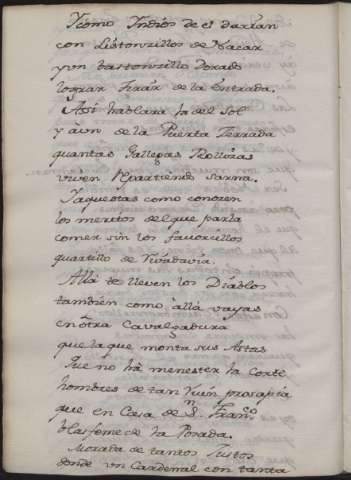 Y como Yndios de el Darian
con Listonzillos de Nacar
y un bastonzillo Dorado
lograr tirár de la Entrada.
Assi hablara la del Sol
y aun de la Puerta Zerrada
quantas Gallegas Rollizas
viven repartiendo sarna.
Y aquestas como conocen
los meritos del que parla
comer sin los favorcillos
quartillo de Rivadavia.
Allá te lleven los Diablos
tambien como allá vayas
en otra Cavalgadura
que la que monta sus Astas
Que no há menester la Corte
hombres de tan Ruin prosapia
que en Casa de Sn. Franco.
blasfeme de la Posada.
Morada de tantos Justos
donde un Cardenal con tanta